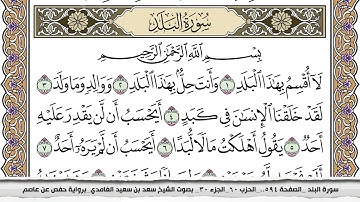 سُورَةُ البَلَدِ
بِسْمِ اللَّهِ الرَّحْمَٰنِ الرَّحِيمِ
لَا أُقْسِمُ بِهَٰذَا الْبَلَدِ ١ وَأَنتَ حِلٌّ بِهَٰذَا الْبَلَدِ ٢ وَوَالِدٍ وَمَا وَلَدَ ٣
لَقَدْ خَلَقْنَا الْإِنسَٰنَ فِي كَبَدٍ ٤ أَيَحْسَبُ أَن لَّن يَقْدِرَ عَلَيْهِ
أَحَدٌ ٥ يَقُولُ أَهْلَكْتُ مَالًا لُّبَدًا ٦ أَيَحْسَبُ أَن لَّمْ يَرَهُ أَحَدٌ ٧
سورة البلد _الصفحة ٥٩٤_ الحزب ٦٠_الجزء ٣٠_ بصوت الشيخ سعد بن سعيد الغامدي_ برواية حفص عن عاصم